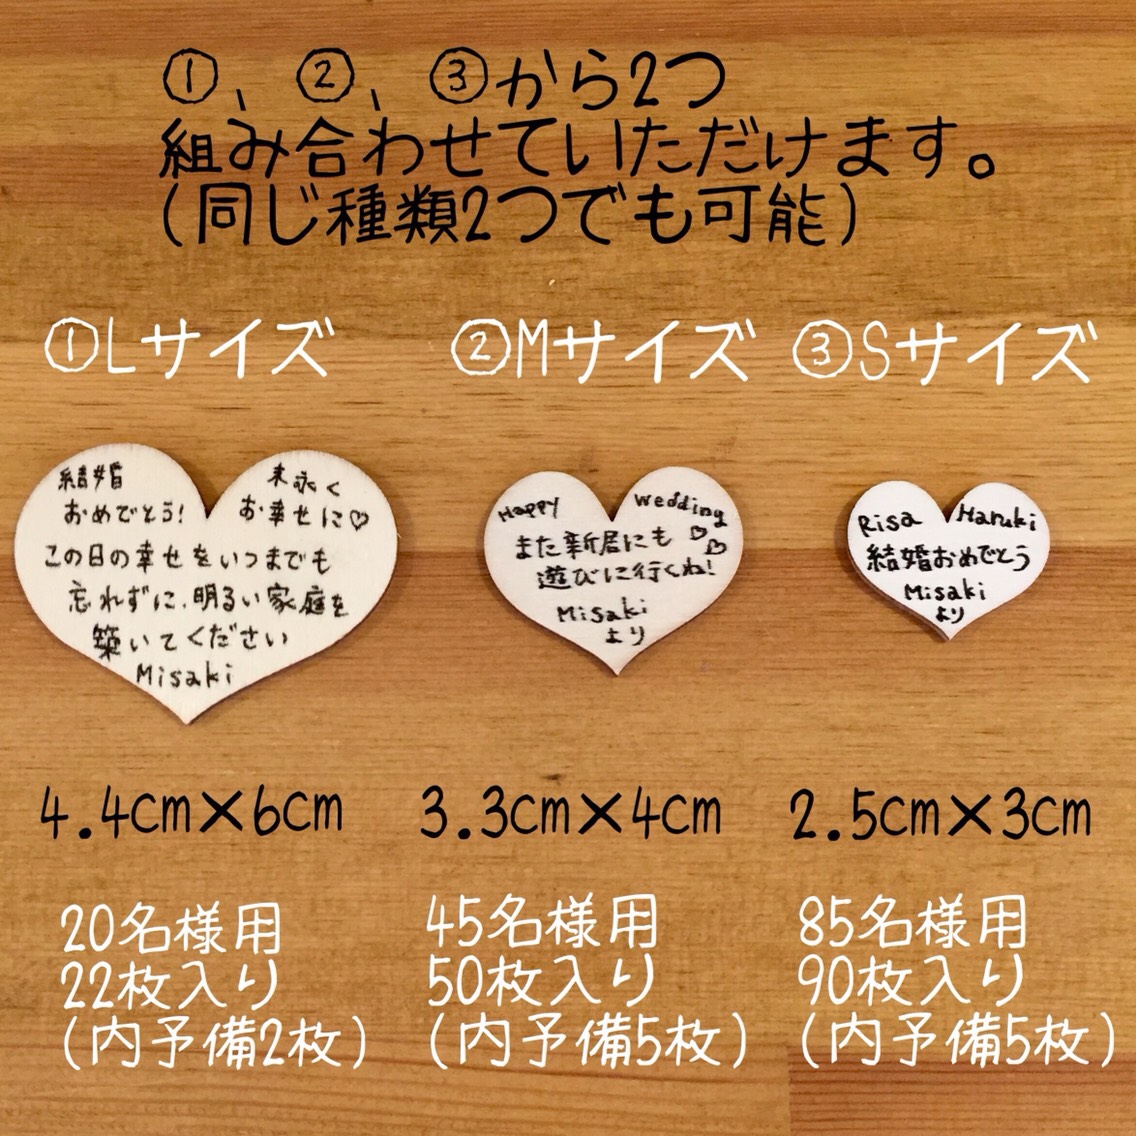 ①、②、③から2つ
組み合わせていただけます。
(同じ種類2つでも可能)
①Lサイズ
②Mサイズ
③Sサイズ
結婚
おめでとう!
末永く
お幸せに♡
この日の幸せをいつまでも
忘れずに、明るい家庭を
築いてください
Misaki
Happy Wedding
また新居にも♡♡
遊びに行くね!
Misaki
より
Risa Haruki
結婚おめでとう
Misaki
より
4.4cm×6cm
3.3cm×4cm
2.5cm×3cm
20名様用
22枚入り
(内予備2枚)
45名様用
50枚入り
(内予備5枚)
85名様用
90枚入り
(内予備5枚)